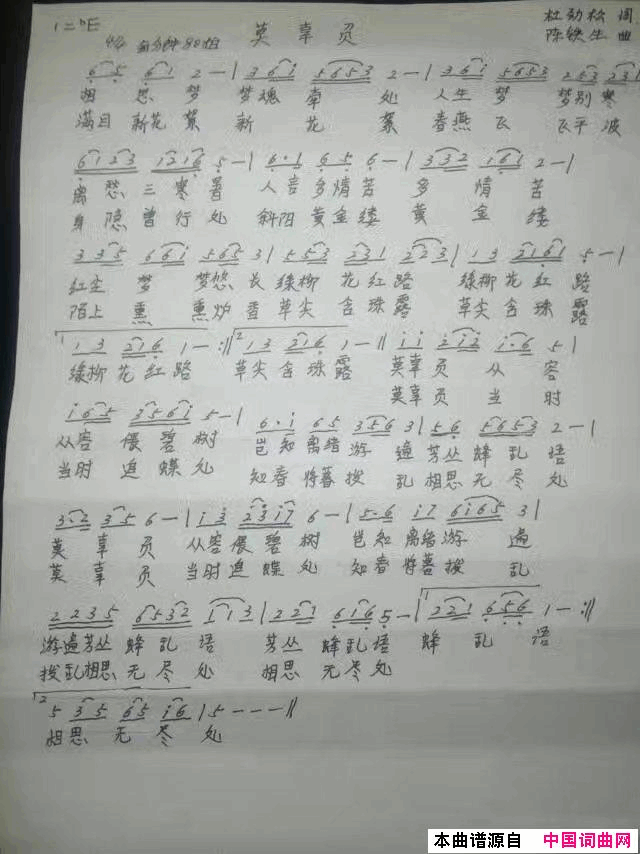 1=bE 莫辜负 杜劲松 词
4/4 每分钟80拍 陈铁生 曲
6 5 6 1 2 - | 3 6 i 5 6 5 3 2 - | 3 6 i 5 6 5 3 2 5 3 2 3 1 |
相思梦 梦魂牵处 人生梦 梦别寒
满目新花絮 新花絮 春燕飞 飞平波
6 1 2 3 1 2 1 6 5 - | 6 · 1 6 5 6 - | 3 3 2 1 6 1 2 - |
离愁三寒暑 人言多情苦 多情苦
身隐曾行处 斜阳黄金缕 黄金缕
3 3 5 6 6 i 5 6 5 3 | 5 5 3 2 3 1 2 2 3 | 1 3 2 1 6 1 5 - |
红尘梦 梦悠长 绿柳花红路 绿柳花红路
陌上熏 熏炉香 草尖含珠露 草尖含珠露
1 1 3 2 1 6 1 - :|| 2 1 3 2 1 6 1 - || i i 2 i 2 i · 6 5 |
绿柳花红路 草尖含珠露 莫辜负 从容
莫辜负 当时
i 6 5 3 5 6 i 5 - | 6 · i 6 5 3 5 6 3 | 5 6 5 6 5 3 2 - |
从容偎碧树 岂知离绪游遍芳丛蜂乱语
当时追蝶处 知春将暮拨乱相思无尽处
3 · 2 3 5 6 - | i 3 2 3 i 7 6 - | 5 · 6 i 7 6 i 6 5 3 |
莫辜负 从容偎碧树 岂知离绪游遍
莫辜负 当时追蝶处 知春将暮拨乱
2 2 3 5 6 5 3 2 1 1 3 | 2 2 1 6 1 6 5 - | 1 2 2 1 6 5 6 1 - :||
游遍芳丛蜂乱语 芳丛蜂乱语 蜂乱语
拨乱相思无尽处 相思无尽处
2 5 3 5 6 5 i 6 | 5 - - - ||
相思无尽处
本曲谱源自 中国词曲网